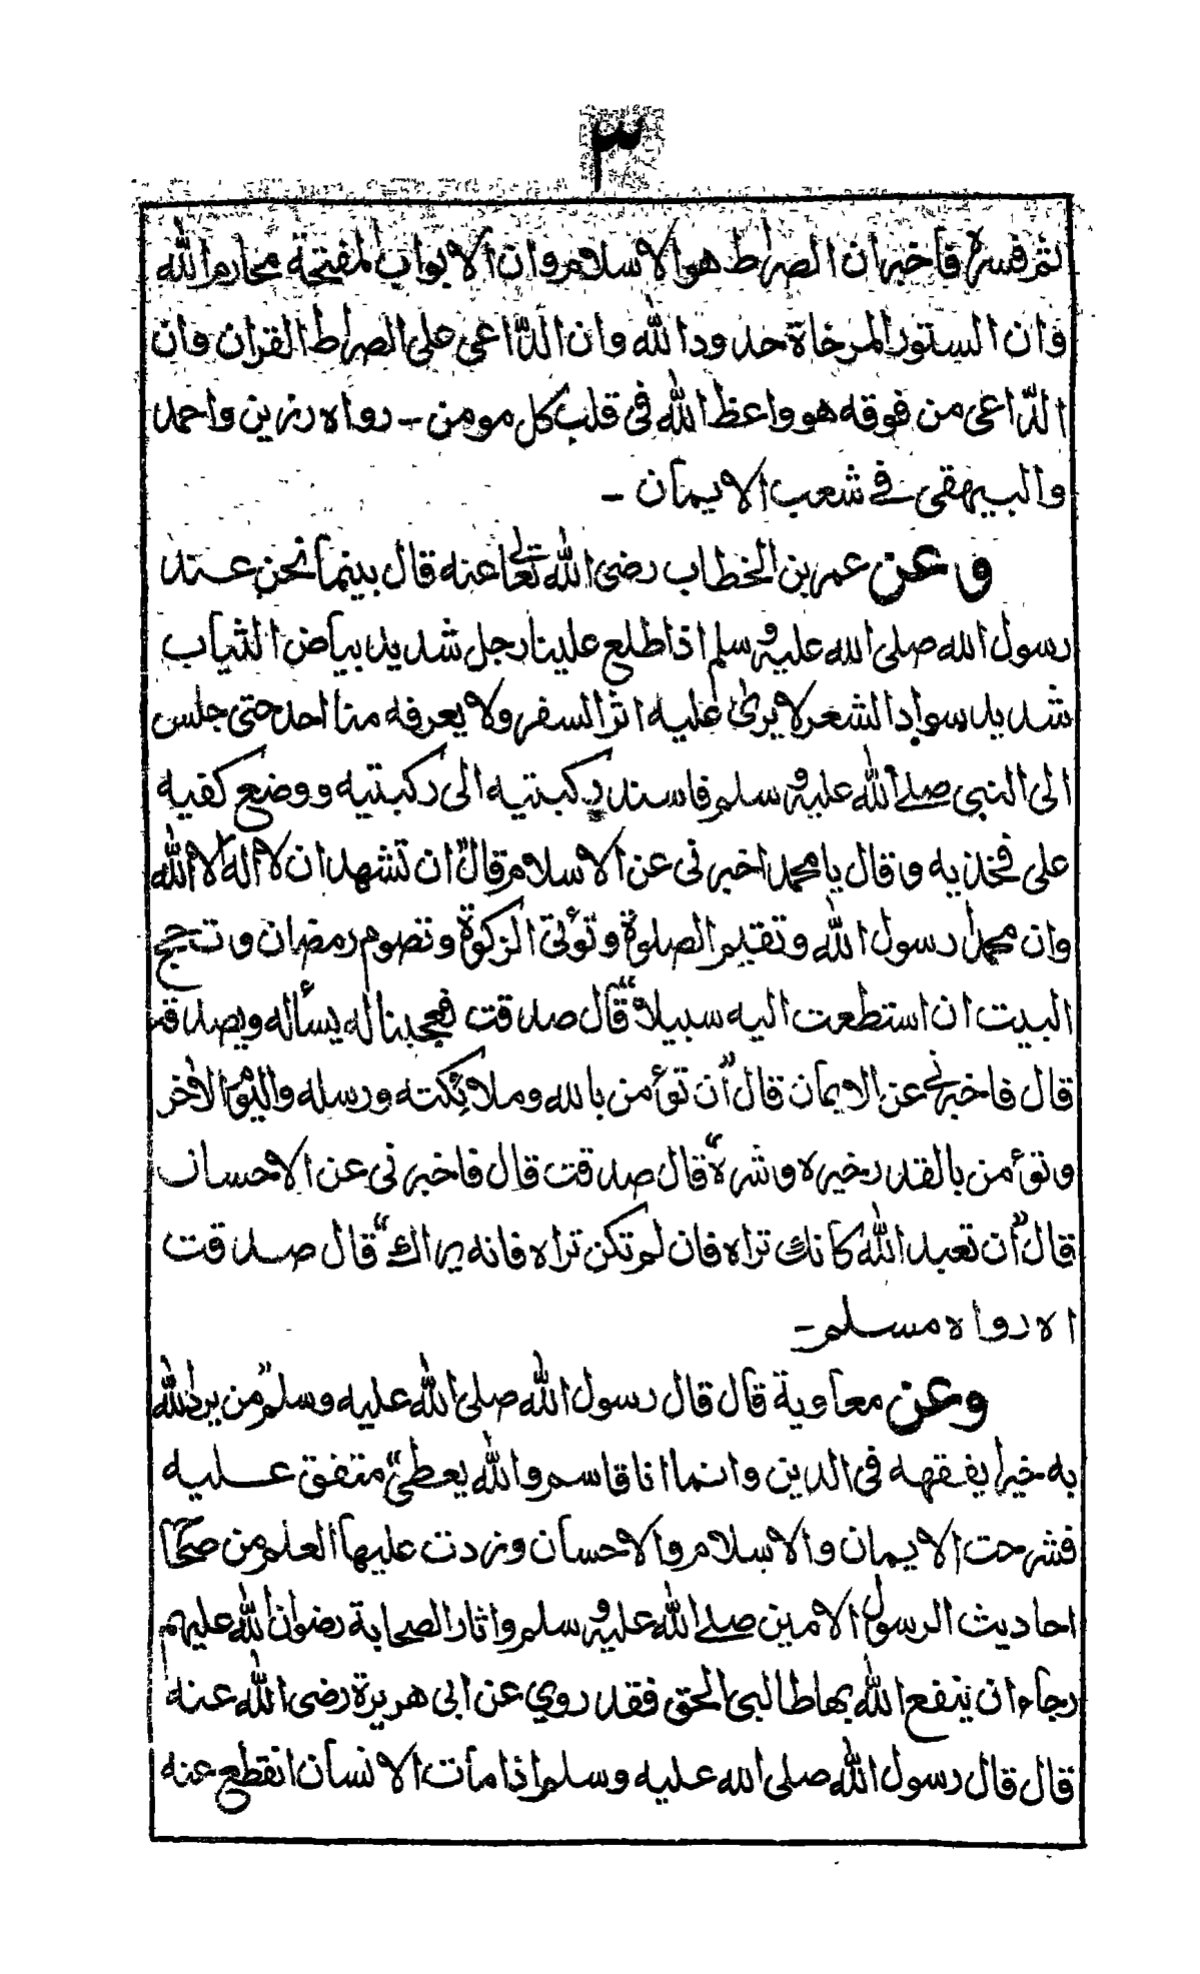 ٣
ثم فسره فاخبر ان الصراط هو الاسلام وان الابواب المفتحة محارم الله
وان الستور المرخاة حدود الله وان الدّاعى على الصراط القران وان
الدّاعى من فوقه هو واعظ الله فى قلب كل مومن ــ رواه رزين واحمد
والبيهقى فى شعب الايمان ــ
وعن عمر بن الخطاب رضى الله تعالى عنه قال بينما نحن عند
رسول الله صلى الله عليه وسلم اذا طلع علينا رجل شديد بياض الثياب
شديد سواد الشعر لا يرى عليه اثر السفر ولا يعرفه منا احد حتى جلس
الى النبى صلى الله عليه وسلم فاسند ركبتيه الى ركبتيه ووضع كفيه
على فخذيه وقال يا محمد اخبرنى عن الاسلام قال "ان تشهد ان لا اله الا الله
وان محمدا رسول الله وتقيم الصلوة وتؤتى الزكوة وتصوم رمضان وتحج
البيت ان استطعت اليه سبيلا" قال صدقت فعجبنا له يسأله ويصدقه
قال فاخبرنى عن الايمان قال "ان تؤمن بالله وملائكته ورسله واليوم الاخر
وتؤمن بالقدر خيره وشره" قال صدقت قال فاخبرنى عن الاحسان
قال "ان تعبد الله كانك تراه فان لم تكن تراه فانه يراك" قال صدقت
اه رواه مسلم ــ
وعن معاوية قال قال رسول الله صلى الله عليه وسلم "من يرد الله
به خيرا يفقهه فى الدين وانما انا قاسم والله يعطى" متفق عليه
فشرحت الايمان والاسلام والاحسان وزدت عليها العلم من صحاح
احاديث الرسول الامين صلى الله عليه وسلم واثار الصحابة رضوان الله عليهم
رجاء ان ينفع الله بها طالبى الحق فقد روي عن ابى هريرة رضى الله عنه
قال قال رسول الله صلى الله عليه وسلم اذا مات الانسان انقطع عنه